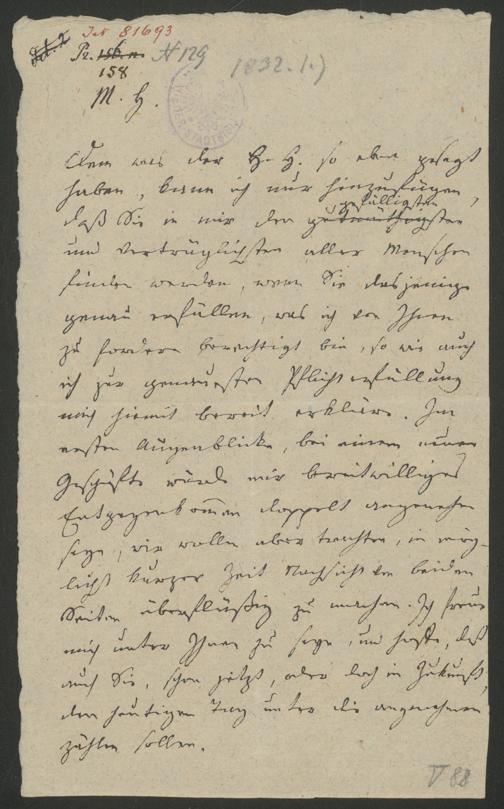 Jes 81693
N 129
158
1832. 1.)
M. H.
Dem was der H. H. so eben gesagt
haben, kann ich nur hinzufügen,
gefälligsten
daß Sie in mir den gutmüthigsten
und verträglichsten aller Menschen
finden werden, wenn Sie dasjenige
genau erfüllen, was ich von Ihnen
zu fordern berechtigt bin, so wie auch
ich zur genauesten Pflichterfüllung
mich hiemit bereit erkläre. Im
ersten Augenblicke, bei einem neuen
Geschäfte würde mir bereitwilliges
Entgegenkommen doppelt angenehm
seyn, wir wollen aber trachten, in mög-
lichst kurzer Zeit Nachsicht von beiden
Seiten überflüßig zu machen. Ich freue
mich unter Ihnen zu seyn, und hoffe, daß
auch Sie, schon jetzt, oder doch in Zukunft,
den heutigen Tag unter die angenehmen
zählen sollen.
V 88